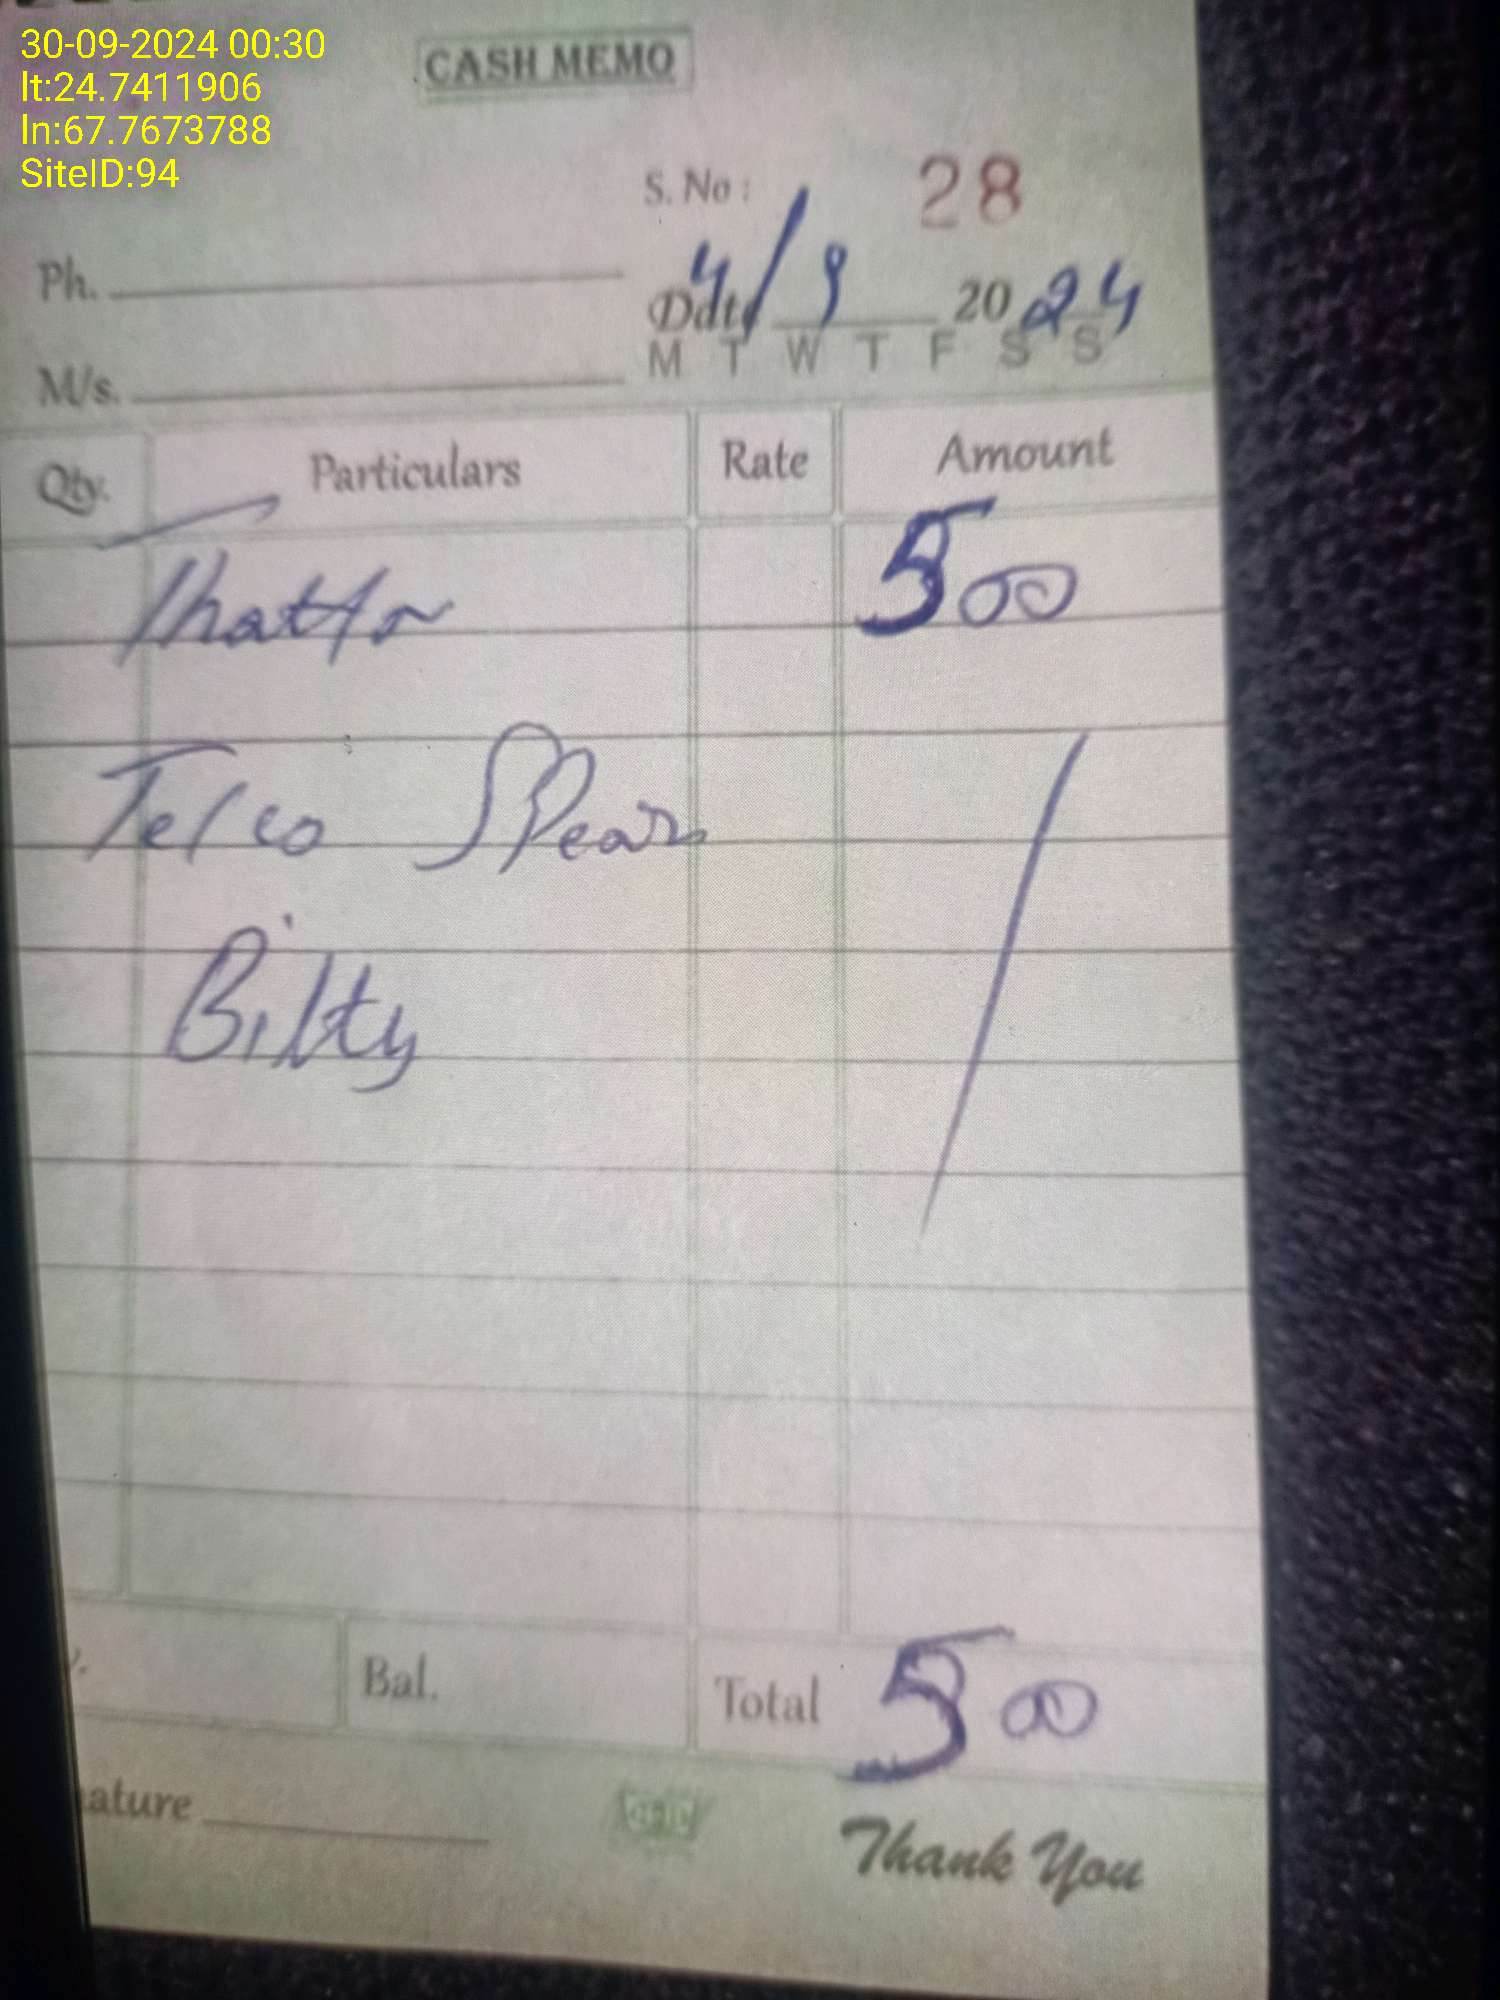 30-09-2024 00:30
lt:24.7411906
ln:67.7673788
SiteID:94
CASH MEMO
S. No : 28
Ph.
Date 4/9 2024
M T W T F S S
M/s.
Qty. Particulars Rate Amount
Thatta 500
Telco Spear
Bilty
Bal. Total 500
ature
Thank You